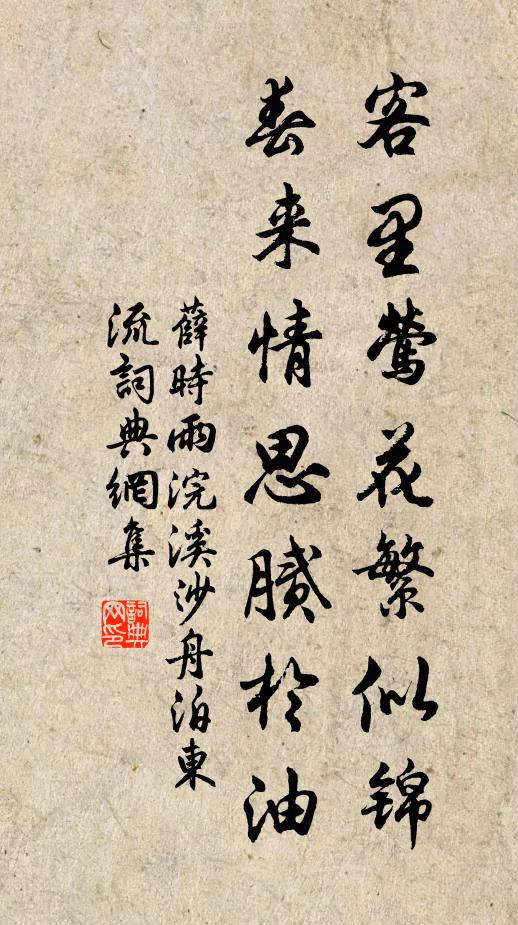 客里莺花繁似锦
春来情思腻於油
薛時雨浣溪沙舟泊東
流詞典網集
詞典
网印